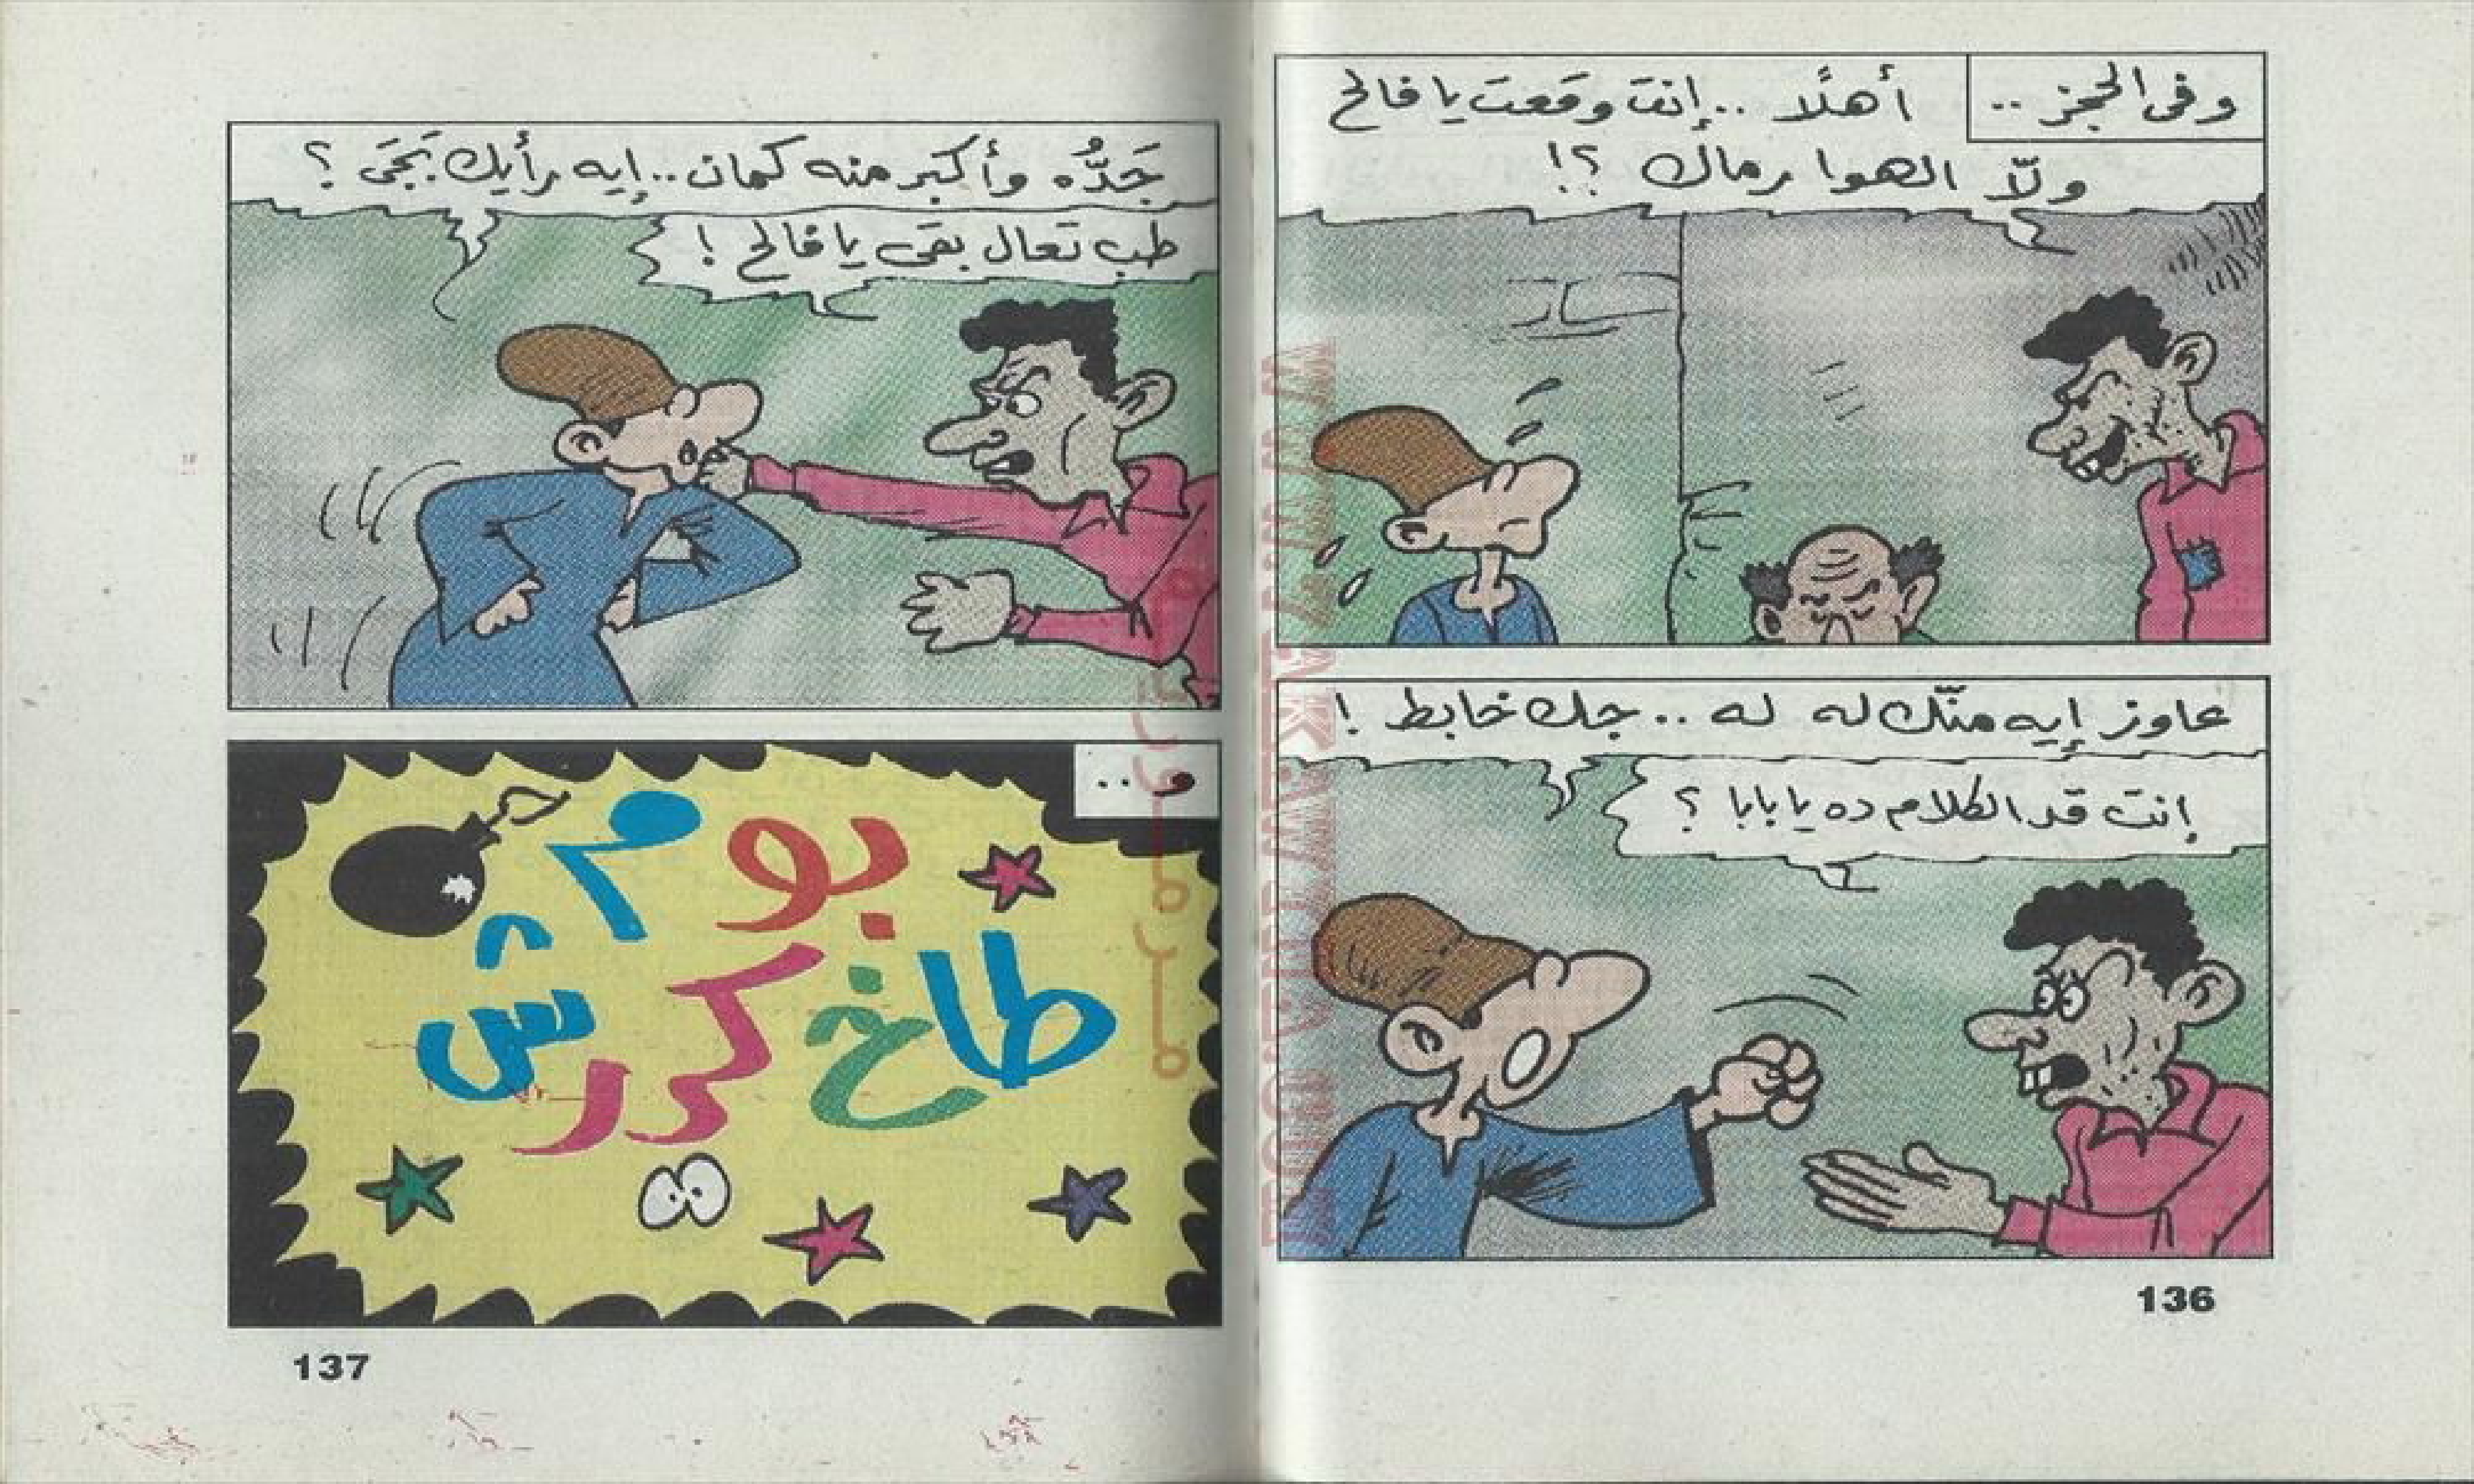 وفى الحجز ..
أهلًا ..إنت وقعت يا فالح
ولّا الهوا رماك ؟!
عاوز إيه منّك له له .. جك خابط !
إنت قد الكلام ده يا بابا ؟
136
جَدُّه وأكبر منه كمان..إيه رأيك بَجَى ؟
طب تعال بقى يا فالح !
و ..
بوم
طاخ كررش
137